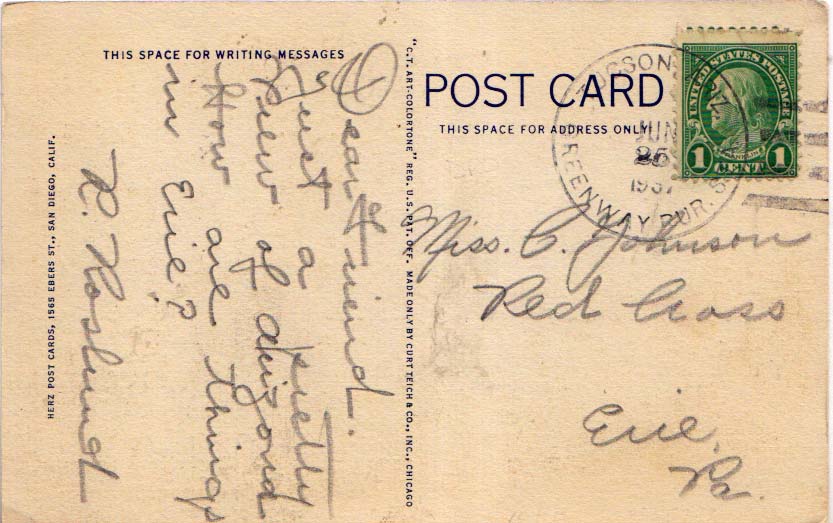 THIS SPACE FOR WRITING MESSAGES
Dear Friend.
Just a pretty
view of Arizona
How are things
in Erie?
R. Roslund
HERZ POST CARDS, 1565 EBERS ST., SAN DIEGO, CALIF.
"C.T. ART-COLORTONE" REG. U.S. PAT. OFF. MADE ONLY BY CURT TEICH & CO., INC., CHICAGO
POST CARD
THIS SPACE FOR ADDRESS ONLY
TUCSON ARIZ.
JUN
25
1937
UNITED STATES POSTAGE
FRANKLIN
1 CENT 1
Miss. C. Johnson
Red Cross
Erie,
Pa.